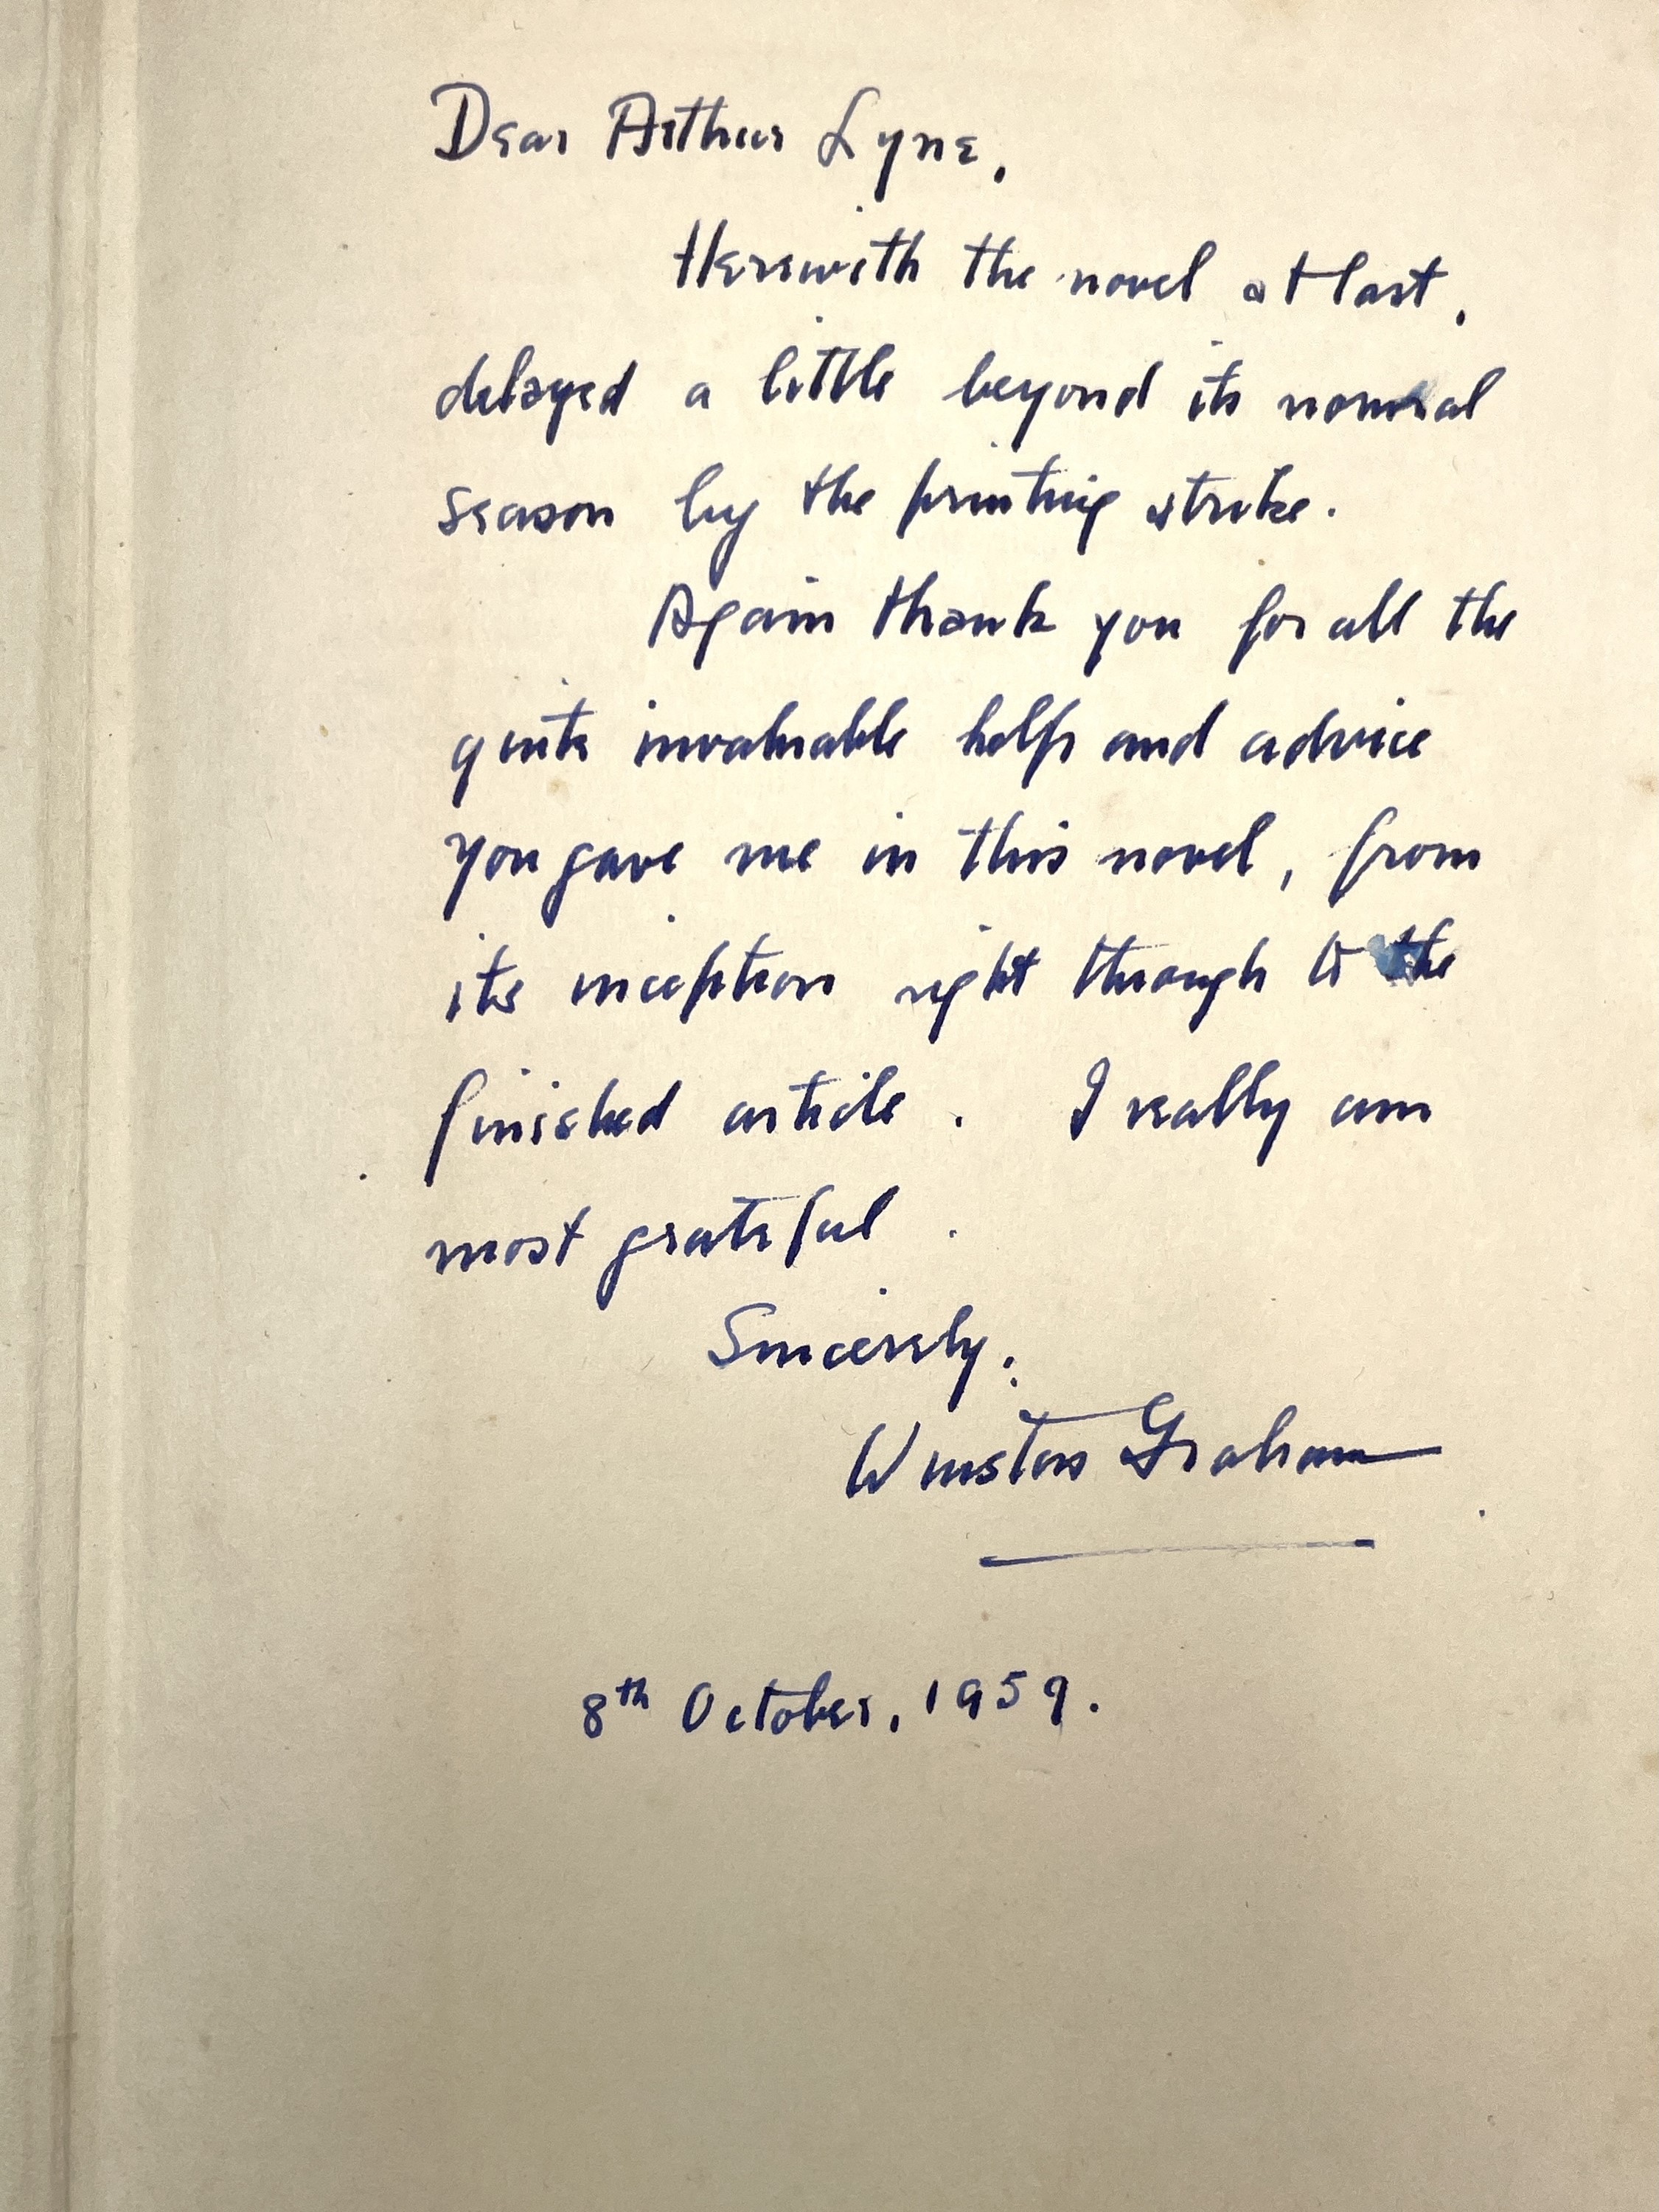 Dear Arthur Lyne,
Herewith the novel at last,
delayed a little beyond its normal
season by the printing strike.
Again thank you for all the
quite invaluable help and advice
you gave me in this novel, from
its inception right through to the
finished article. I really am
most grateful.
Sincerely,
Winston Graham
8th October, 1959.